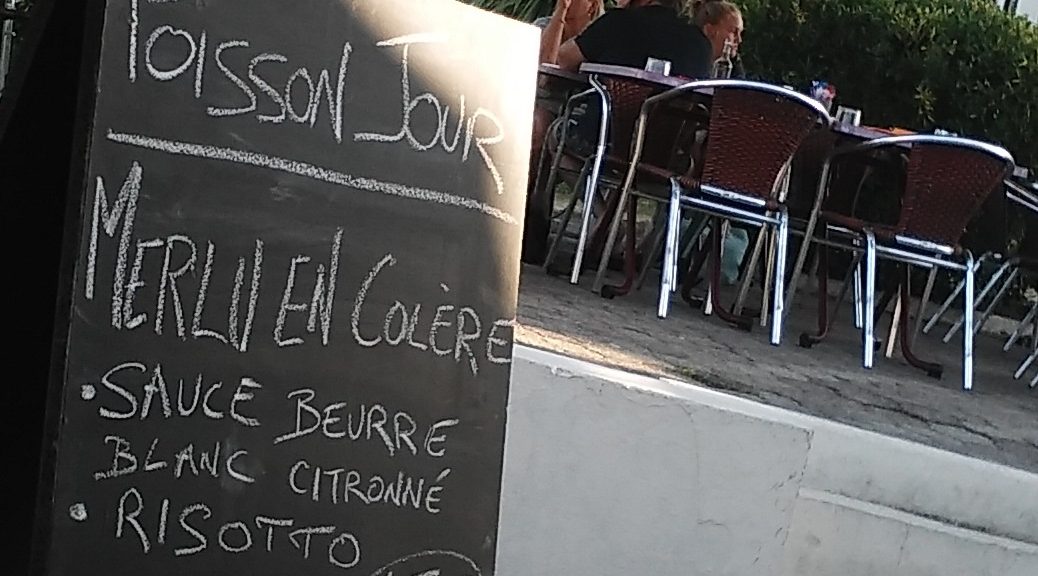 POISSON JOUR
MERLU EN COLÈRE
• SAUCE BEURRE
BLANC CITRONNÉ
• RISOTTO